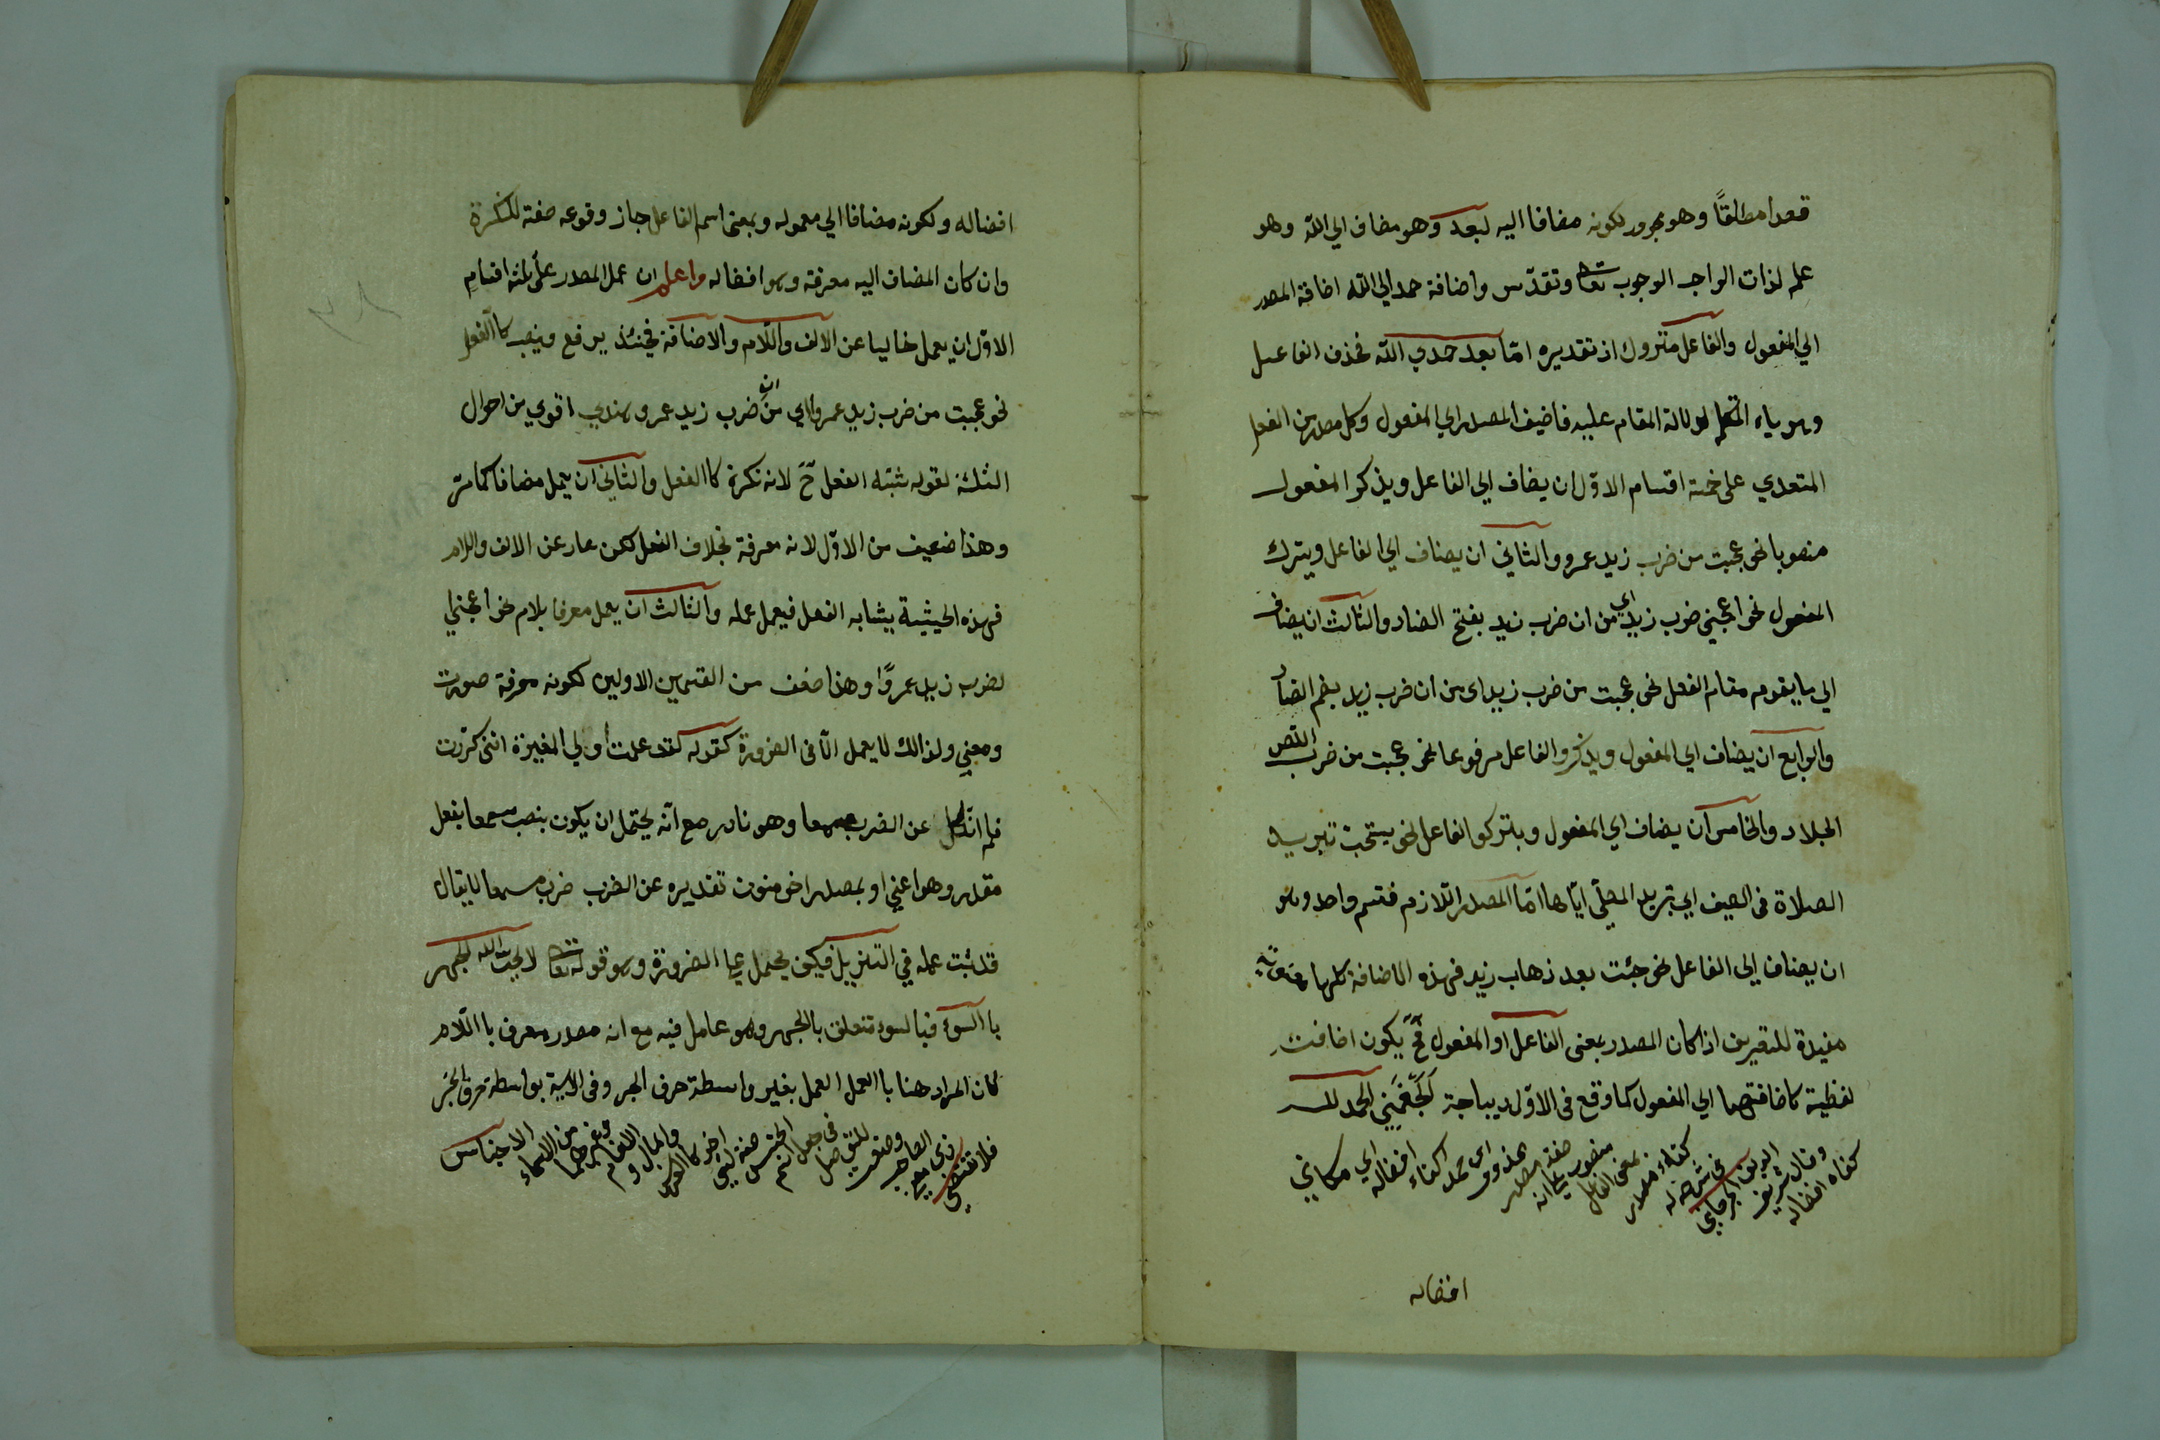 قعدا مطلقاً وهو مجرور لكونه مضافا اليه لبعد وهو مضاف الي الله وهو
علم لذات الواجب الوجوب تعا وتقدّس واضافة حمد الي الله اضافة المصدر
الي المفعول والفاعل متروك اذ تقديره امّا بعد حمدي الله فحذف الفاعل
وهو ياء المتكلم لدلالة المقام عليه فاضيف المصدر الي المفعول وكل مصدر من الفعل
المتعدي على خمسة اقسام الاوّل ان يضاف الي الفاعل ويذكر المفعول
منصوبا نحو عجبت من ضرب زيد عمرو والثاني ان يضاف الي الفاعل ويترك
المفعول نحو اعجبني ضرب زيد اي من ان ضرب زيد بفتح الضاد والثالث ان يضاف
الي ما يقوم مقام الفعل نحو عجبت من ضرب زيد اي من ان ضرب زيد بضم الضاد
والرابع ان يضاف الي المفعول ويذكر والفاعل مرفوعا نحو عجبت من ضرب اللص
الجلاد والخامس ان يضاف الي المفعول ويتركوا الفاعل نحو يستحبّ تبريد
الصلاة في الصيف اي تبريد المصلّي ايّاها امّا المصدر اللّازم فقسم واحد وهو
ان يضاف الي الفاعل نحو جئت بعد ذهاب زيد فهذه الاضافة كلها معنويّة
مفيدة للتعريف اذا كان المصدر بمعنى الفاعل او المفعول فحّ يكون اضافته
لفظية كاضافتهما الي المفعول كما وقع في الاوّل ديباجة لجّغميني الحمد لله
كفاء افضاله وقال شريف الدين الجرجاني في شرحه كفاء مصدر بمعنى الفاعل منصوب علي انه صفة مصدر محذوف اي حمدا كفاء افضاله اي مكافي
افضاله
افضاله ولكونه مضافا الي معموله وبمعنى اسم الفاعل جاز وقوعه صفة للنكرة
وان كان المضاف اليه معرفة وهو افضاله واعلم ان عمل المصدر على ثلثة اقسام
الاوّل ان يعمل خاليا عن الالف واللّام والاضافة فحينئذ يرفع وينصب كالفعل
نحو عجبت من ضرب زيد عمروا اي من ان ضرب زيد عمرو وهذي اقوي من احوال
الثلثة لقوله شبّه الفعل حّ لانه نكرة كا الفعل والثاني ان يعمل مضافا كما مرّ
وهذا ضعيف من الاوّل لانه معرفة بخلاف الفعل لكن عار عن الالف واللام
فهذه الحيثية يشابه الفعل فيعمل عمله والثالث ان يعمل معرفا بلام نحو اعجبني
لضرب زيد عمروًا وهذا ضعف من القسمين الاولين لكونه معرفة صورت
ومعني ولذالك لا يعمل الّا في الضرورة كقوله لقد علمت أولي المغيرة انني كررت
فلم انكل عن الضرب مسمعا وهو نادر مع انّه يحتمل ان يكون بنصب مسمعا بفعل
مقدر وهو اعني او بمصدر اخر منون تقديره عن الضرب ضرب مسمعا لا يقال
قد ثبت عمله في التنزيل فكيف يحمل علي الضرورة وهو قوله تعا لا يحب الله الجهر
با السوء فبا السوء متعلق بالجهر وهو عامل فيه مع انه مصدر معرف با اللّام
كان المراد هنا با العمل العمل بغير واسطة حرف الجر وفي الآية بواسطة حرف الجر
فلا نقض